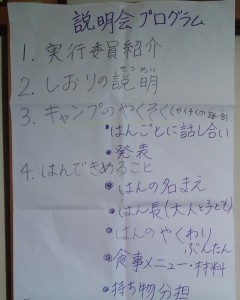 説明会プログラム
1. 実行委員紹介
2. しおりの説明
せつめい
3. キャンプのやくそく(やくそくの話し合)
・はんごとに話し合い
・発表
4. はんできめること
・はんの名まえ
・はん長(大人と子ども)
・はんのやくわり
ぶんたん
・食事メニュー・材料
・持ち物分担